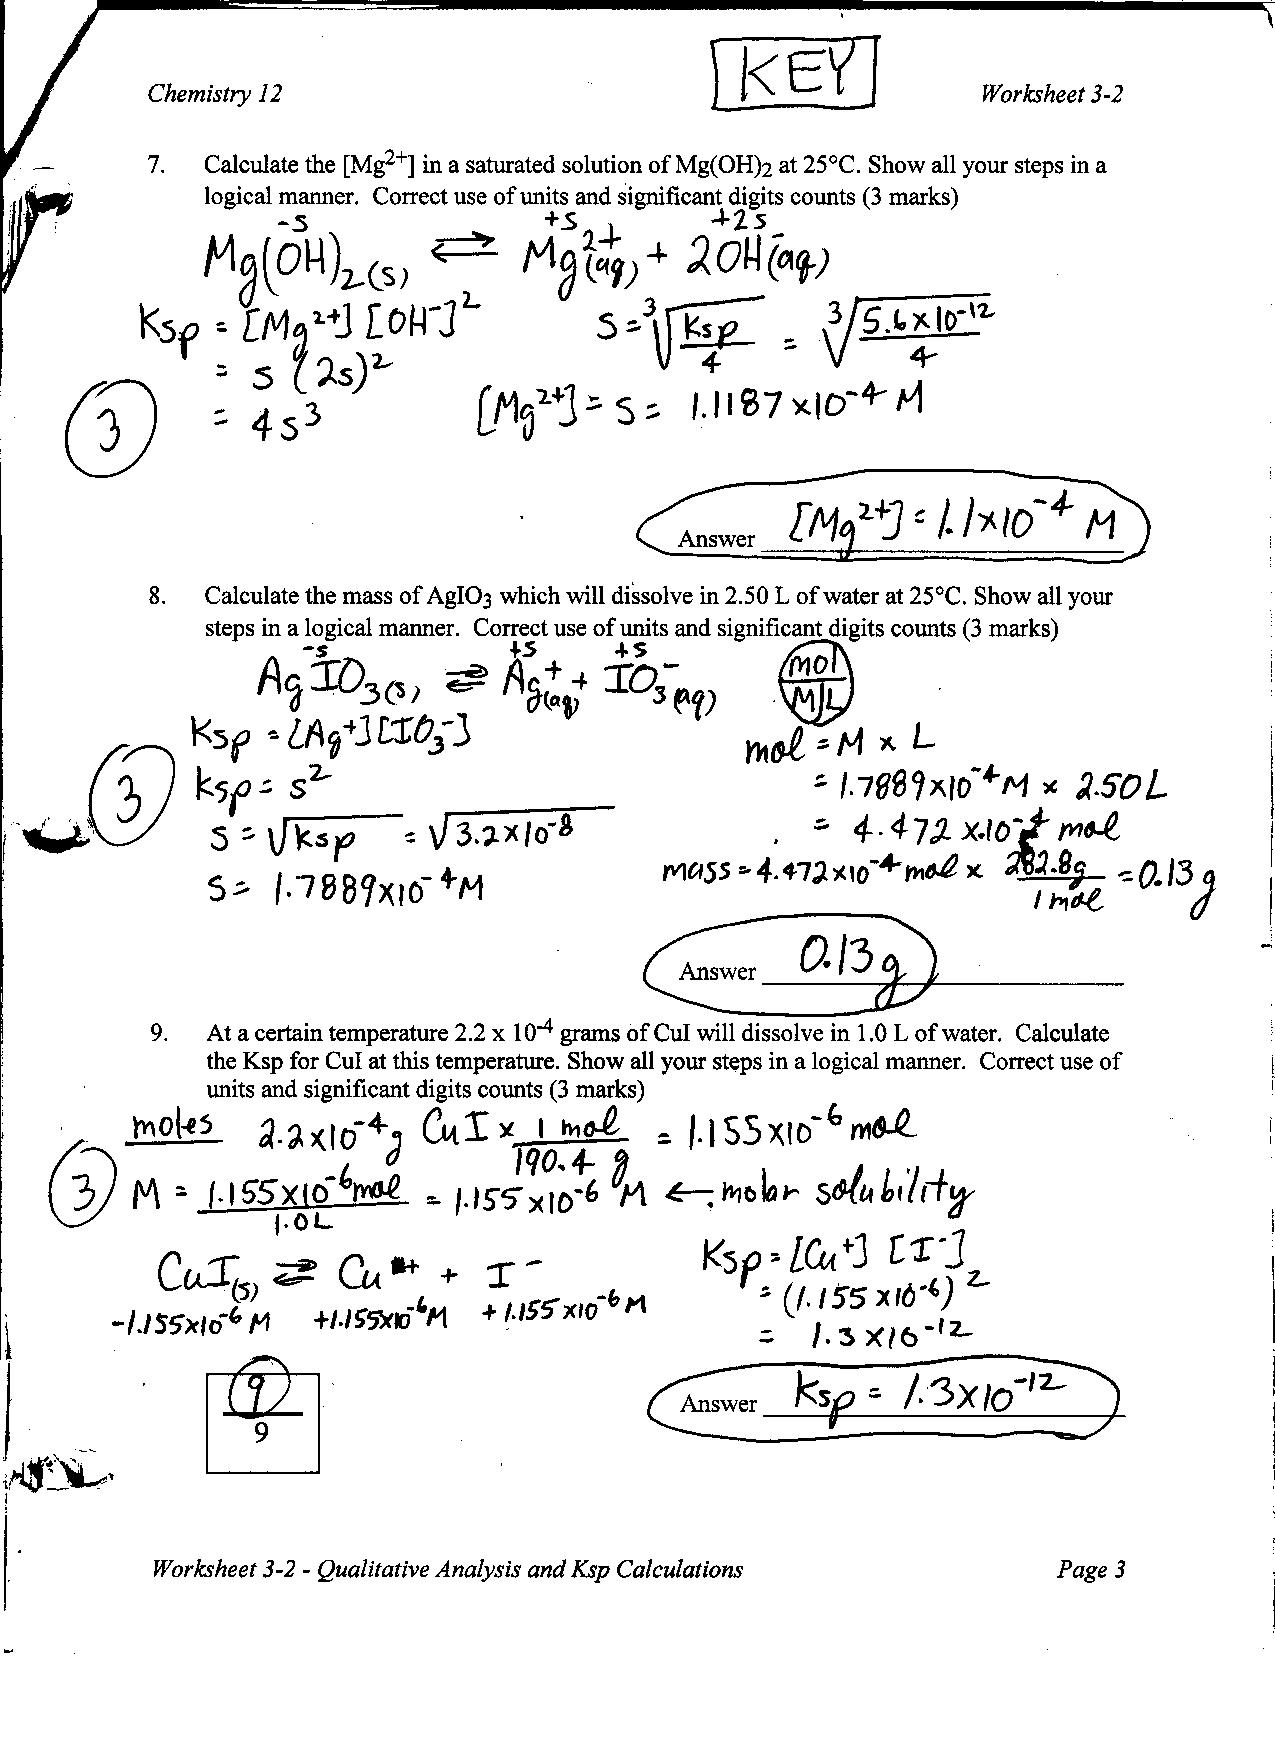 KEY
Chemistry 12 Worksheet 3-2
7. Calculate the [Mg2+] in a saturated solution of Mg(OH)2 at 25°C. Show all your steps in a
logical manner. Correct use of units and significant digits counts (3 marks)
-s +s +2s
Mg(OH)2(s) ⇌ Mg2+(aq) + 2OH-(aq)
Ksp = [Mg2+] [OH-]2 s = 3√Ksp/4 = 3√5.6 x 10-12/4
= s (2s)2
= 4s3 [Mg2+] = s = 1.1187 x 10-4 M
3
Answer [Mg2+] = 1.1 x 10-4 M
8. Calculate the mass of AgIO3 which will dissolve in 2.50 L of water at 25°C. Show all your
steps in a logical manner. Correct use of units and significant digits counts (3 marks)
-s +s +s
AgIO3(s) ⇌ Ag+(aq) + IO3-(aq) mol M|L
Ksp = [Ag+][IO3-] mol = M x L
3 Ksp = s2 = 1.7889 x 10-4 M x 2.50 L
s = √Ksp = √3.2 x 10-8 = 4.472 x 10-4 mol
s = 1.7889 x 10-4 M mass = 4.472 x 10-4 mol x 282.8g/1 mol = 0.13 g
Answer 0.13 g
9. At a certain temperature 2.2 x 10-4 grams of CuI will dissolve in 1.0 L of water. Calculate
the Ksp for CuI at this temperature. Show all your steps in a logical manner. Correct use of
units and significant digits counts (3 marks)
moles 2.2 x 10-4 g CuI x 1 mol/190.4 g = 1.155 x 10-6 mol
3 M = 1.155 x 10-6 mol/1.0 L = 1.155 x 10-6 M ← molar solubility
CuI(s) ⇌ Cu+ + I- Ksp = [Cu+] [I-]
-1.155x10-6 M +1.155x10-6 M +1.155 x10-6 M = (1.155 x 10-6)2
= 1.3 x 10-12
9
9
Answer Ksp = 1.3 x 10-12
Worksheet 3-2 - Qualitative Analysis and Ksp Calculations Page 3